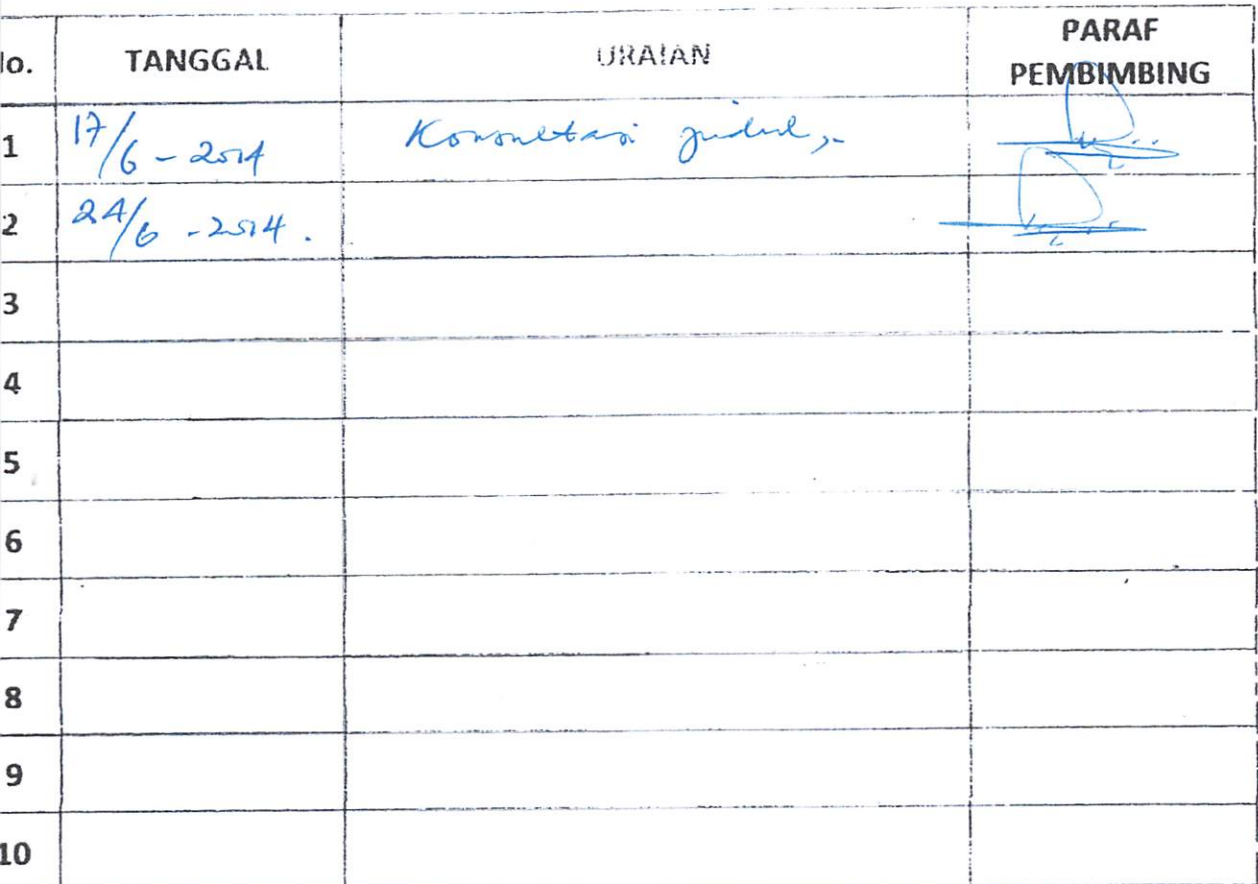 No. TANGGAL URAIAN PARAF
PEMBIMBING
1 17/6 - 2014 Konsultasi judul,-
2 24/6 - 2014.
3
4
5
6
7
8
9
10